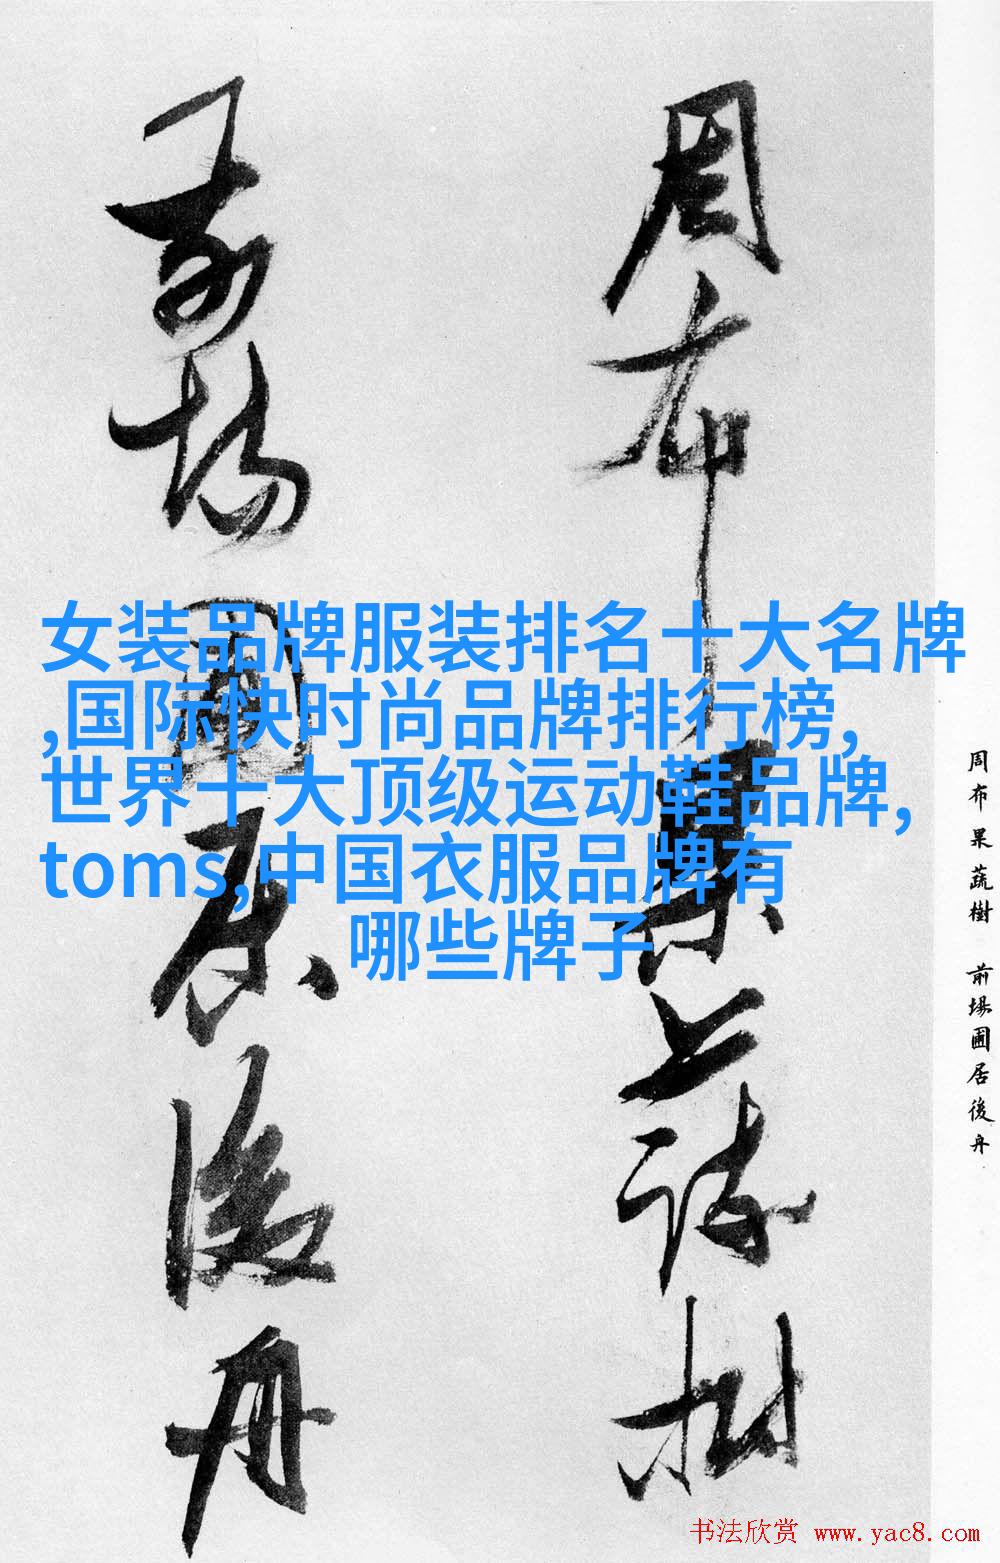 女装品牌服装排名十大名牌
,国际快时尚品牌排行榜,
世界十大顶级运动鞋品牌,
toms,中国衣服品牌有
哪些牌子
周布果蔬樹
前場圃居後舟
周布果蔬樹 前場圃居後舟
书法欣赏 www.yac8.com